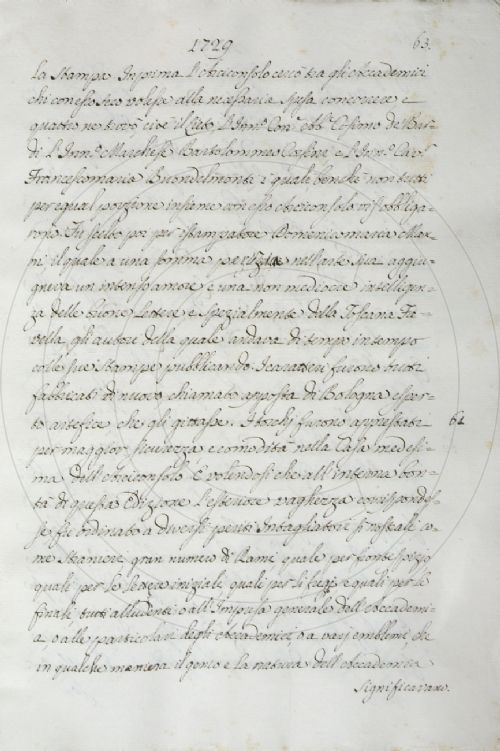 1729
63.
La Stampa. In prima l'Arciconsolo cercò tra gli Accademici
chi con esso seco volesse alla necessaria spesa concorrere e
quattro ne trovò cioè il
di l'Inn.º Marchese Bartolommeo Corsini e l'Inn.º Cav.
Francescomaria Buondelmonti i quali benchè non tutti
per egual porzione insieme con esso Arciconsolo vi s'obbliga-
rono. Fu scelto poi per stampatore Domenico Maria Man-
ni il quale a una somma perizia nell'arte sua aggiu-
gneva un intenso amore e una non mediocre intelligen-
za delle buone Lettere e spezialmente della Toscana Fa-
vella, gli autori della quale andava di tempo in tempo
colle sue stampe pubblicando. I caratteri furono tutti
fabbricati di nuovo chiamato apposta di Bologna esper-
to artefice che gli gittasse. I torchj furono appressate
per maggior sicurezza e comodità nella Casa medesi-
ma dell'Arciconsolo. E volendosi che all'interna bon-
tà di questa Edizione l'esteriore vaghezza corrispondes-
se fu ordinato a diversi periti Intagliatori sì nostrali co-
me stranieri gran numero di Rami quale per fontespizio
quali per le Lettere iniziali quali per li fregi e quali per le
finali tutti alludenti o all'Impresa generale dell'Accademi-
a, o alle particolari degli Accademici, o a varj emblemi, che
in qualche maniera il genio e la natura dell'Accademia
significavano.
62